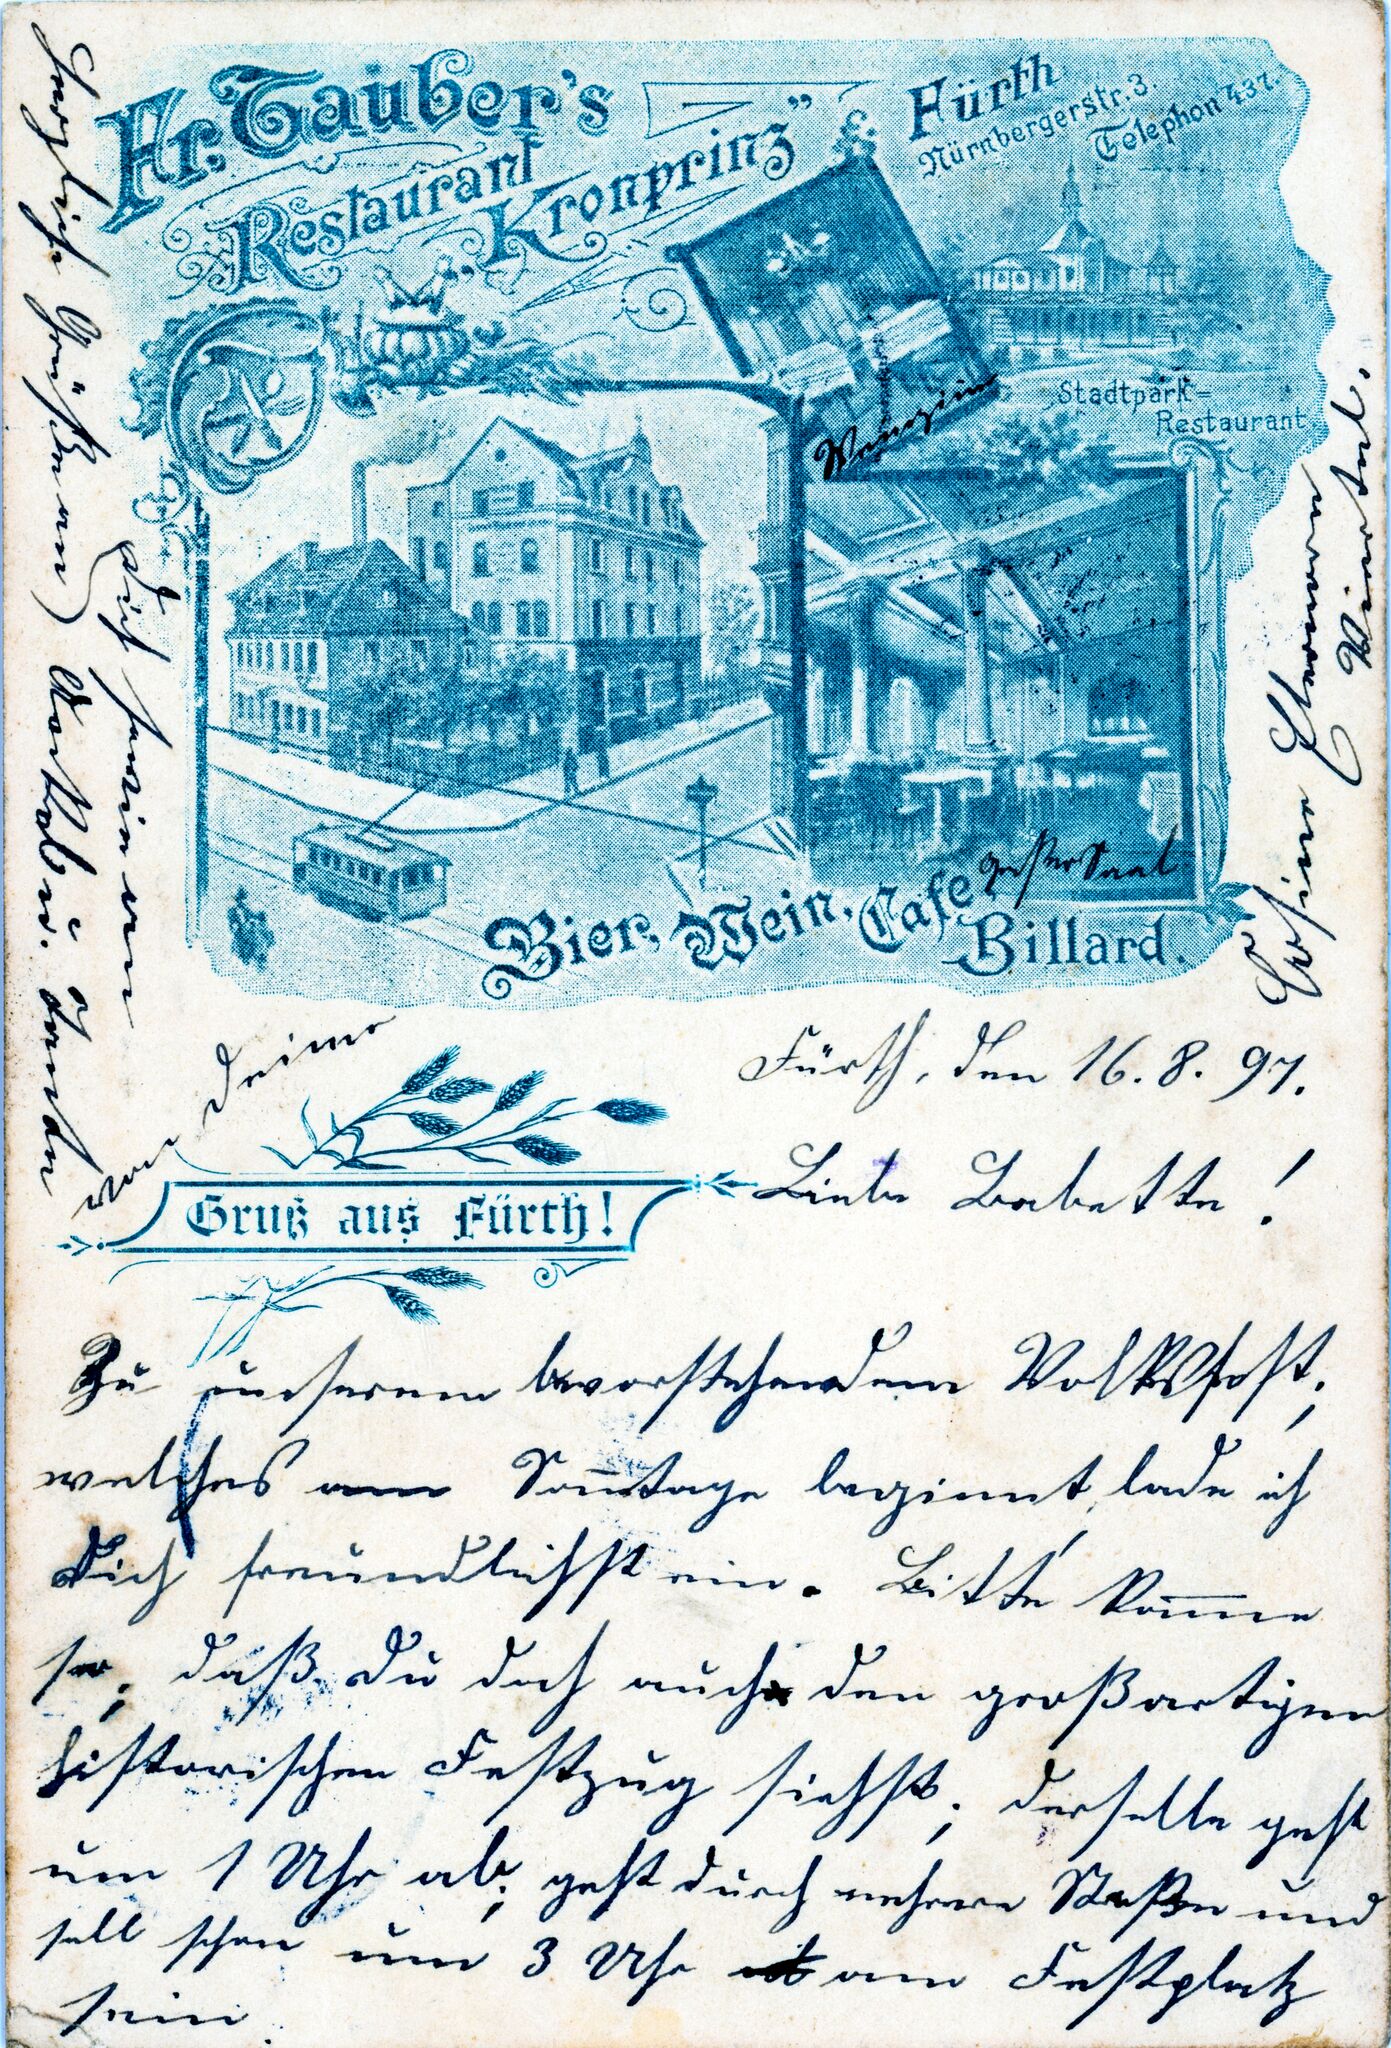 Fr. Tauber's
Restaurant
„Kronprinz”
Fürth
Nürnbergerstr. 3.
Telephon 437.
Stadtpark-
Restaurant
Bier, Wein, Cafe,
Billard.
großer Saal
Gruß aus Fürth!
Fürth, den 16. 8. 97.
Liebe Babette!
Zu unserem bevorstehendem Volksfest,
welches am Sonntage beginnt, lade ich
Dich freundlichst ein. Bitte komme
so, daß Du doch auch den großartigen
historischen Festzug siehst, derselbe geht
um 1 Uhr ab, geht durch mehrere Straßen und
soll schon um 3 Uhr am Festplatz
sein.
Herzliche Grüße an
Dich sowie an
von Deiner